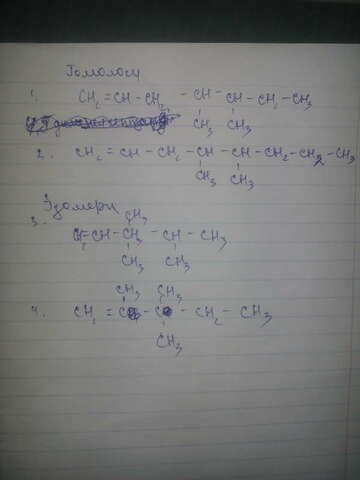 Гомологи
1. CH2=CH-CH2-CH-CH-CH2-CH3
CH3 CH3
2. CH2=CH-CH2-CH-CH-CH2-CH2-CH3
CH3 CH3
Изомеры
CH3
3. CH=CH-CH-CH-CH3
CH3 CH3
CH3 CH3
4. CH2=C-C-CH2-CH3
CH3